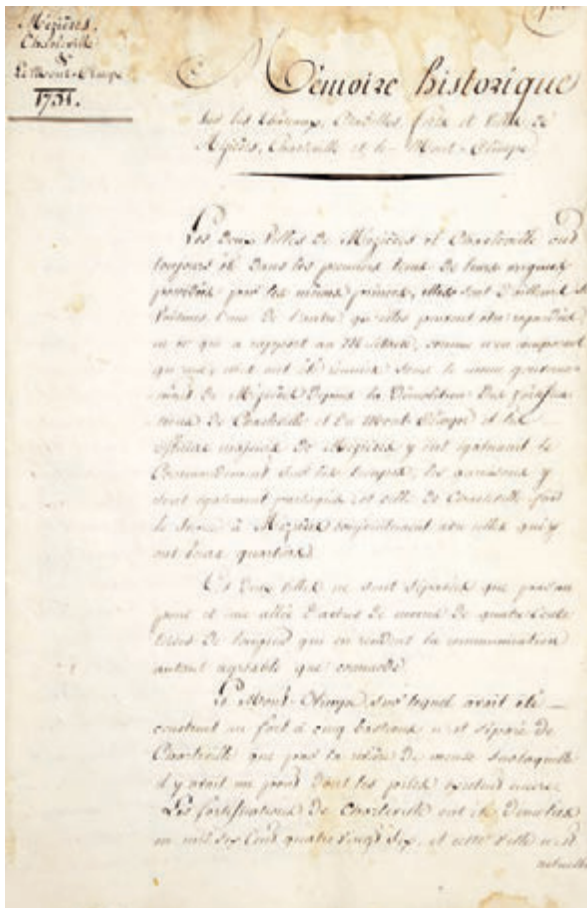 Mézières,
Charleville
&
Le Mont-Olimpe
1731.
Mémoire historique
sur les Chateaux, Citadelles, forts et Villes de
Mézières, Charleville et le Mont-Olimpe
Les deux Villes de Mézières et Charleville ont
toujours été dans les premiers tems de leurs origines
possédées par les mêmes princes, elles sont d'ailleurs si
voisines l'une de l'autre qu'elles peuvent être regardées
en ce qui a rapport au Militaire, comme n'en composant
qu'une, et ont été réunies sous le même gouverne-
ment de Mézières depuis la Démolition des fortifica-
tions de Charleville et du Mont-Olimpe et les
officiers majors de Mézières y ont également le
Commandement sur les troupes, les garnisons y
sont également partagées, et celle de Charleville fait
le service à Mézières conjointement avec celles qui y
ont leurs quartiers.
Ces deux villes ne sont séparées que par un
pont et une allée d'arbres de moins de quatre cents
toises de longueur qui en rendent la communication
autant agréable que commode.
Le Mont-Olimpe sur lequel avait été
construit un fort à cinq bastions n'est séparé de
Charleville que par la rivière de meuse sur laquelle
il y avait un pont dont les piles existent encore
Les fortifications de Charleville ont été démolies
en mil six cent quatre vingt six, et cette ville n'est